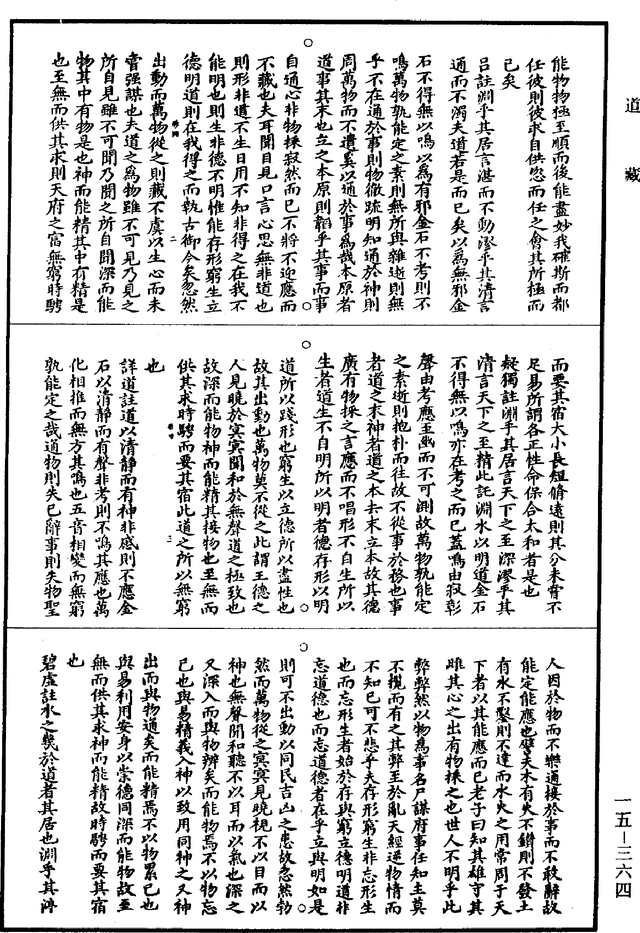 道藏
能物物極至順而後能盡妙我確斯而都
任彼則彼求自供恣而任之會其所極而
已矣
呂註淵乎其居言湛而不動漻乎其清言
通而不濁夫道若是而已矣以為無邪金
石不得無以鳴以為有邪金石不考則不
鳴萬物孰能定之素則無所與雜逝則無
乎不在通於事則物徹疏明知通於神則
周萬物而不遺奚以通於事為哉本原者
道事其末也立之本原則韜乎其事而事
自通心非物採寂然而已不將不迎應而
不藏也夫耳聞目見口言心思無非道也
則形非道不生日用不知非得之在我不
能明也則生非德不明惟能存形窮生立
德明道則在我得之而執古御今矣忽然
出動而萬物從之則藏不虞以生心而未
嘗强謀也夫道之為物雖不可見乃見之
所自見雖不可聞乃聞之所自聞深而能
物其中有物是也神而能精其中有精是
也至無而供其求則天府之富無窮時騁
而要其宿大小長短脩遠則其分未嘗不
足易所謂各正性命保合太和者是也
疑獨註淵乎其居言天下之至深漻乎其
清言天下之至精此託淵水以明道金石
不得無以鳴亦在考之而已蓋鳴由寂彰
聲由考應王幽而不可測故萬物孰能定
之素逝則抱朴而往故不從事於務也事
者道之末神者道之本去末立本故其德
廣有物採之言應而不唱形不自生所以
生者道生不自明所以明者德存形以明
道所以踐形也窮生以立德所以盡性也
故其出動也萬物莫不從之此謂王德之
人見曉於冥冥聞和於無聲道之極致也
故深而能物神而能精其接物也至無而
供其求時騁而要其宿此道之所以無窮
也
詳道註道以清静而有神非感則不應金
石以清静而有聲非考則不鳴其應也萬
化相推而無方其鳴也五音相變而無窮
孰能定之哉道物則失己辭事則失物聖
人因於物而不樂通接於事而不敢辭故
能定能應也譬夫木有火不鑽則不發土
有水不鑿則不達而水火之用常周于天
下者以其能應而已老子曰知其雄守其
雌其心之出有物採之也世人不明乎此
弊弊然以物為事名尸謀府事任知主莫
不攬而有之其弊至於亂天經逆物情而
不知已可不悲乎夫存形窮生非忘形生
也而忘形生者始於存與窮立德明道非
忘道德也而忘道德者在乎立與明如是
則可不出動以同民吉凶之患故忽然勃
然而萬物從之冥冥見曉視不以目而以
神也無聲聞和聽不以耳而以氣也深之
又深入而與物辨矣而能物焉不以物忘
己也與易精義入神以致用同神之又神
出而與物通矣而能精焉不以物累己也
與易利用安身以崇德同深而能物故至
無而供其求神而能精故時騁而要其宿
也
碧虛註水之幾於道者其居也淵乎其渟
一五－三六四